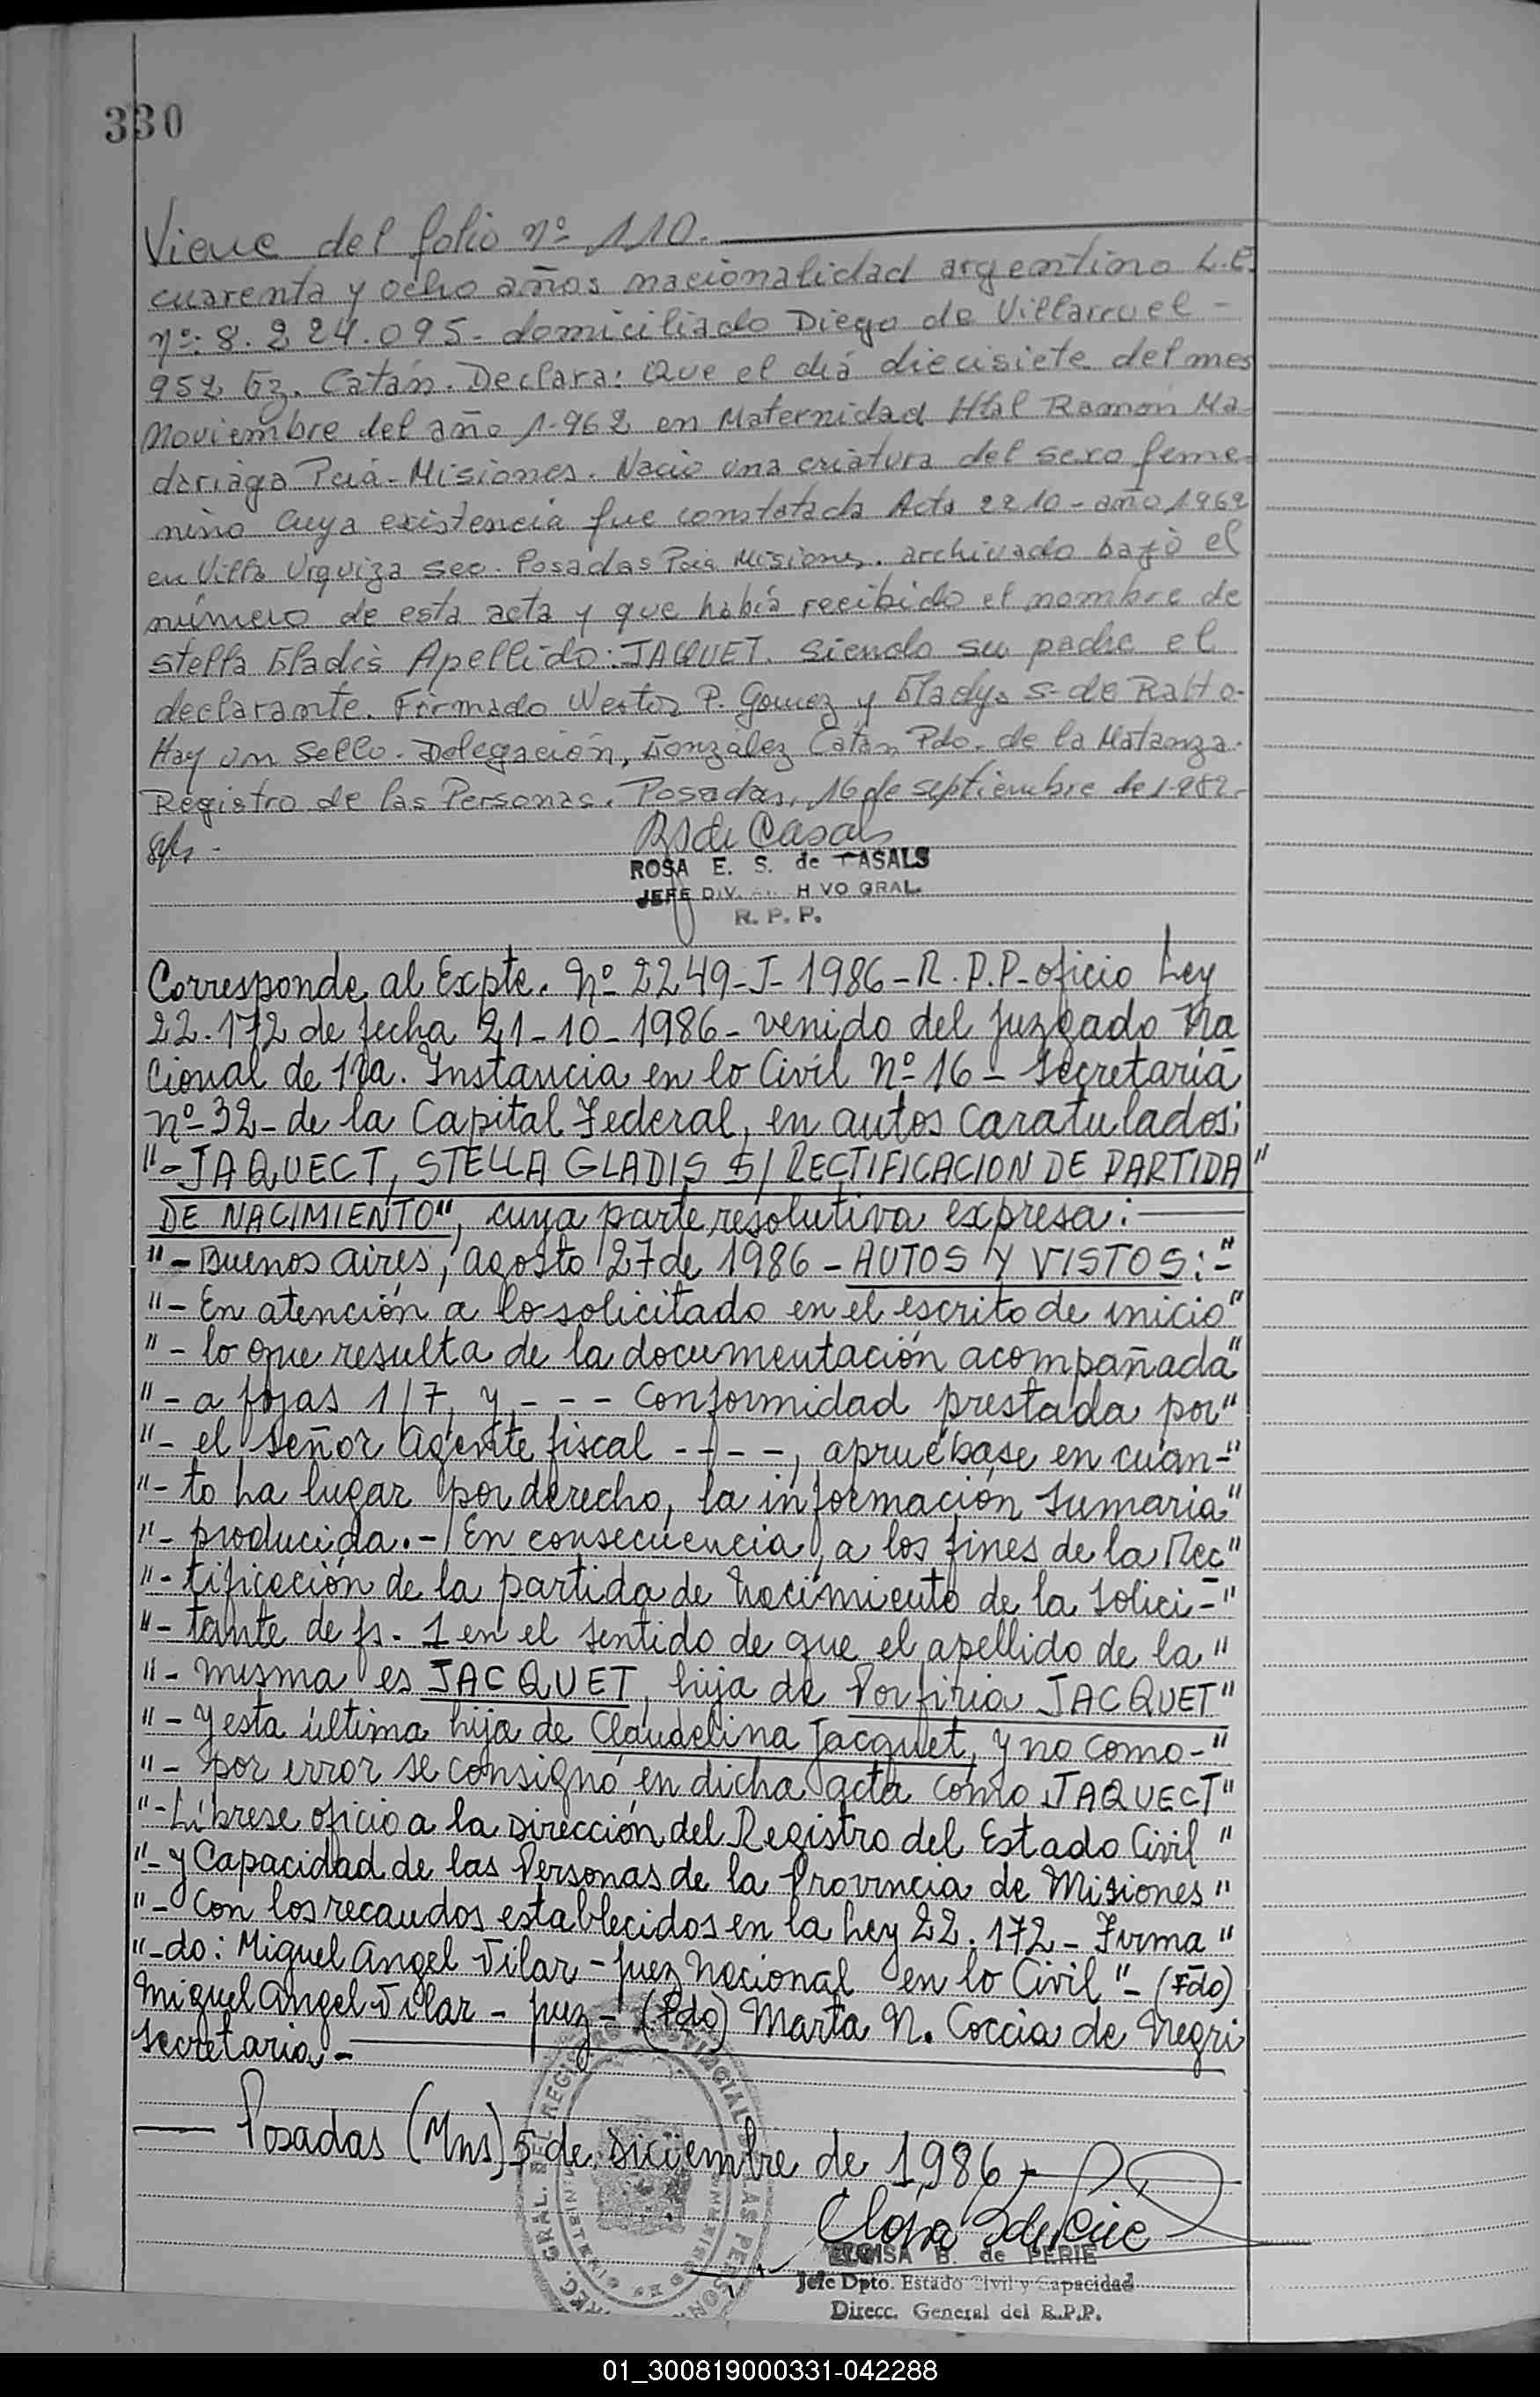 330
Viene del folio nº 110.
cuarenta y ocho años nacionalidad argentino L.E.
nº: 8.224.095- domiciliado Diego de Villarruel -
952 Gz. Catán. Declara: Que el día diecisiete del mes
Noviembre del año 1.962 en Maternidad Htal Ramón Ma-
dariaga Pcia- Misiones. Nació una criatura del sexo feme-
nino cuya existencia fue constatada Acta 2210- año 1962
en Villa Urquiza sec. Posadas Pcia Misiones. archivado bajo el
número de esta acta y que había recibido el nombre de
Stella Gladis Apellido: JAQUET. Siendo su padre el
declarante. Firmado Nestor P. Gomez y Gladys S. de Ratto-
Hay un sello. Delegación, González Catán Pdo. de la Matanza.
Registro de las Personas. Posadas, 16 de septiembre de 1.982.-
RSde Casals
ROSA E. S. de CASALS
JEFE DIV. H VO GRAL.
R. P. P.
Corresponde al Expte. nº 2249-J-1986-R.P.P-oficio Ley
22.172 de fecha 21-10-1986- venido del Juzgado Na
cional de 1ra. Instancia en lo Civil Nº 16 - Secretaría
nº 32- de la Capital Federal, en autos caratulados:
"-JAQUECT, STELLA GLADIS S/ RECTIFICACION DE PARTIDA"
DE NACIMIENTO", cuya parte resolutiva expresa:
"-Buenos Aires, agosto 27 de 1986 - AUTOS Y VISTOS:-"
"- En atención a lo solicitado en el escrito de inicio"
"- lo que resulta de la documentación acompañada"
"- a fojas 1/7, y - - - conformidad prestada por"
"- el señor Agente fiscal - - - -, apruébase en cuan-"
"- to ha lugar por derecho, la información sumaria"
"- producida.- En consecuencia, a los fines de la Rec"
"- tificación de la partida de nacimiento de la solici-"
"- tante de fs. 1 en el sentido de que el apellido de la"
"- misma es JACQUET, hija de Porfiria JACQUET"
"- y esta última hija de Claudelina Jacquet, y no como-"
"- por error se consignó en dicha acta como JAQUECT"
"-Líbrese oficio a la Dirección del Registro del Estado Civil"
"- y Capacidad de las Personas de la Provincia de Misiones"
"- Con los recaudos establecidos en la Ley 22.172 - Firma"
"-do: Miguel Angel Vilar - Juez Nacional en lo Civil"- (Fdo)
Miguel Angel Vilar - Juez - (Fdo) Marta N. Coccia de Negri
Secretaria -
Posadas (Mns) 5 de diciembre de 1986,-
ELOISA B. de PERIE
Jefe Dpto. Estado Civil y Capacidad
Direcc. General del R.P.P.
01_300819000331-042288